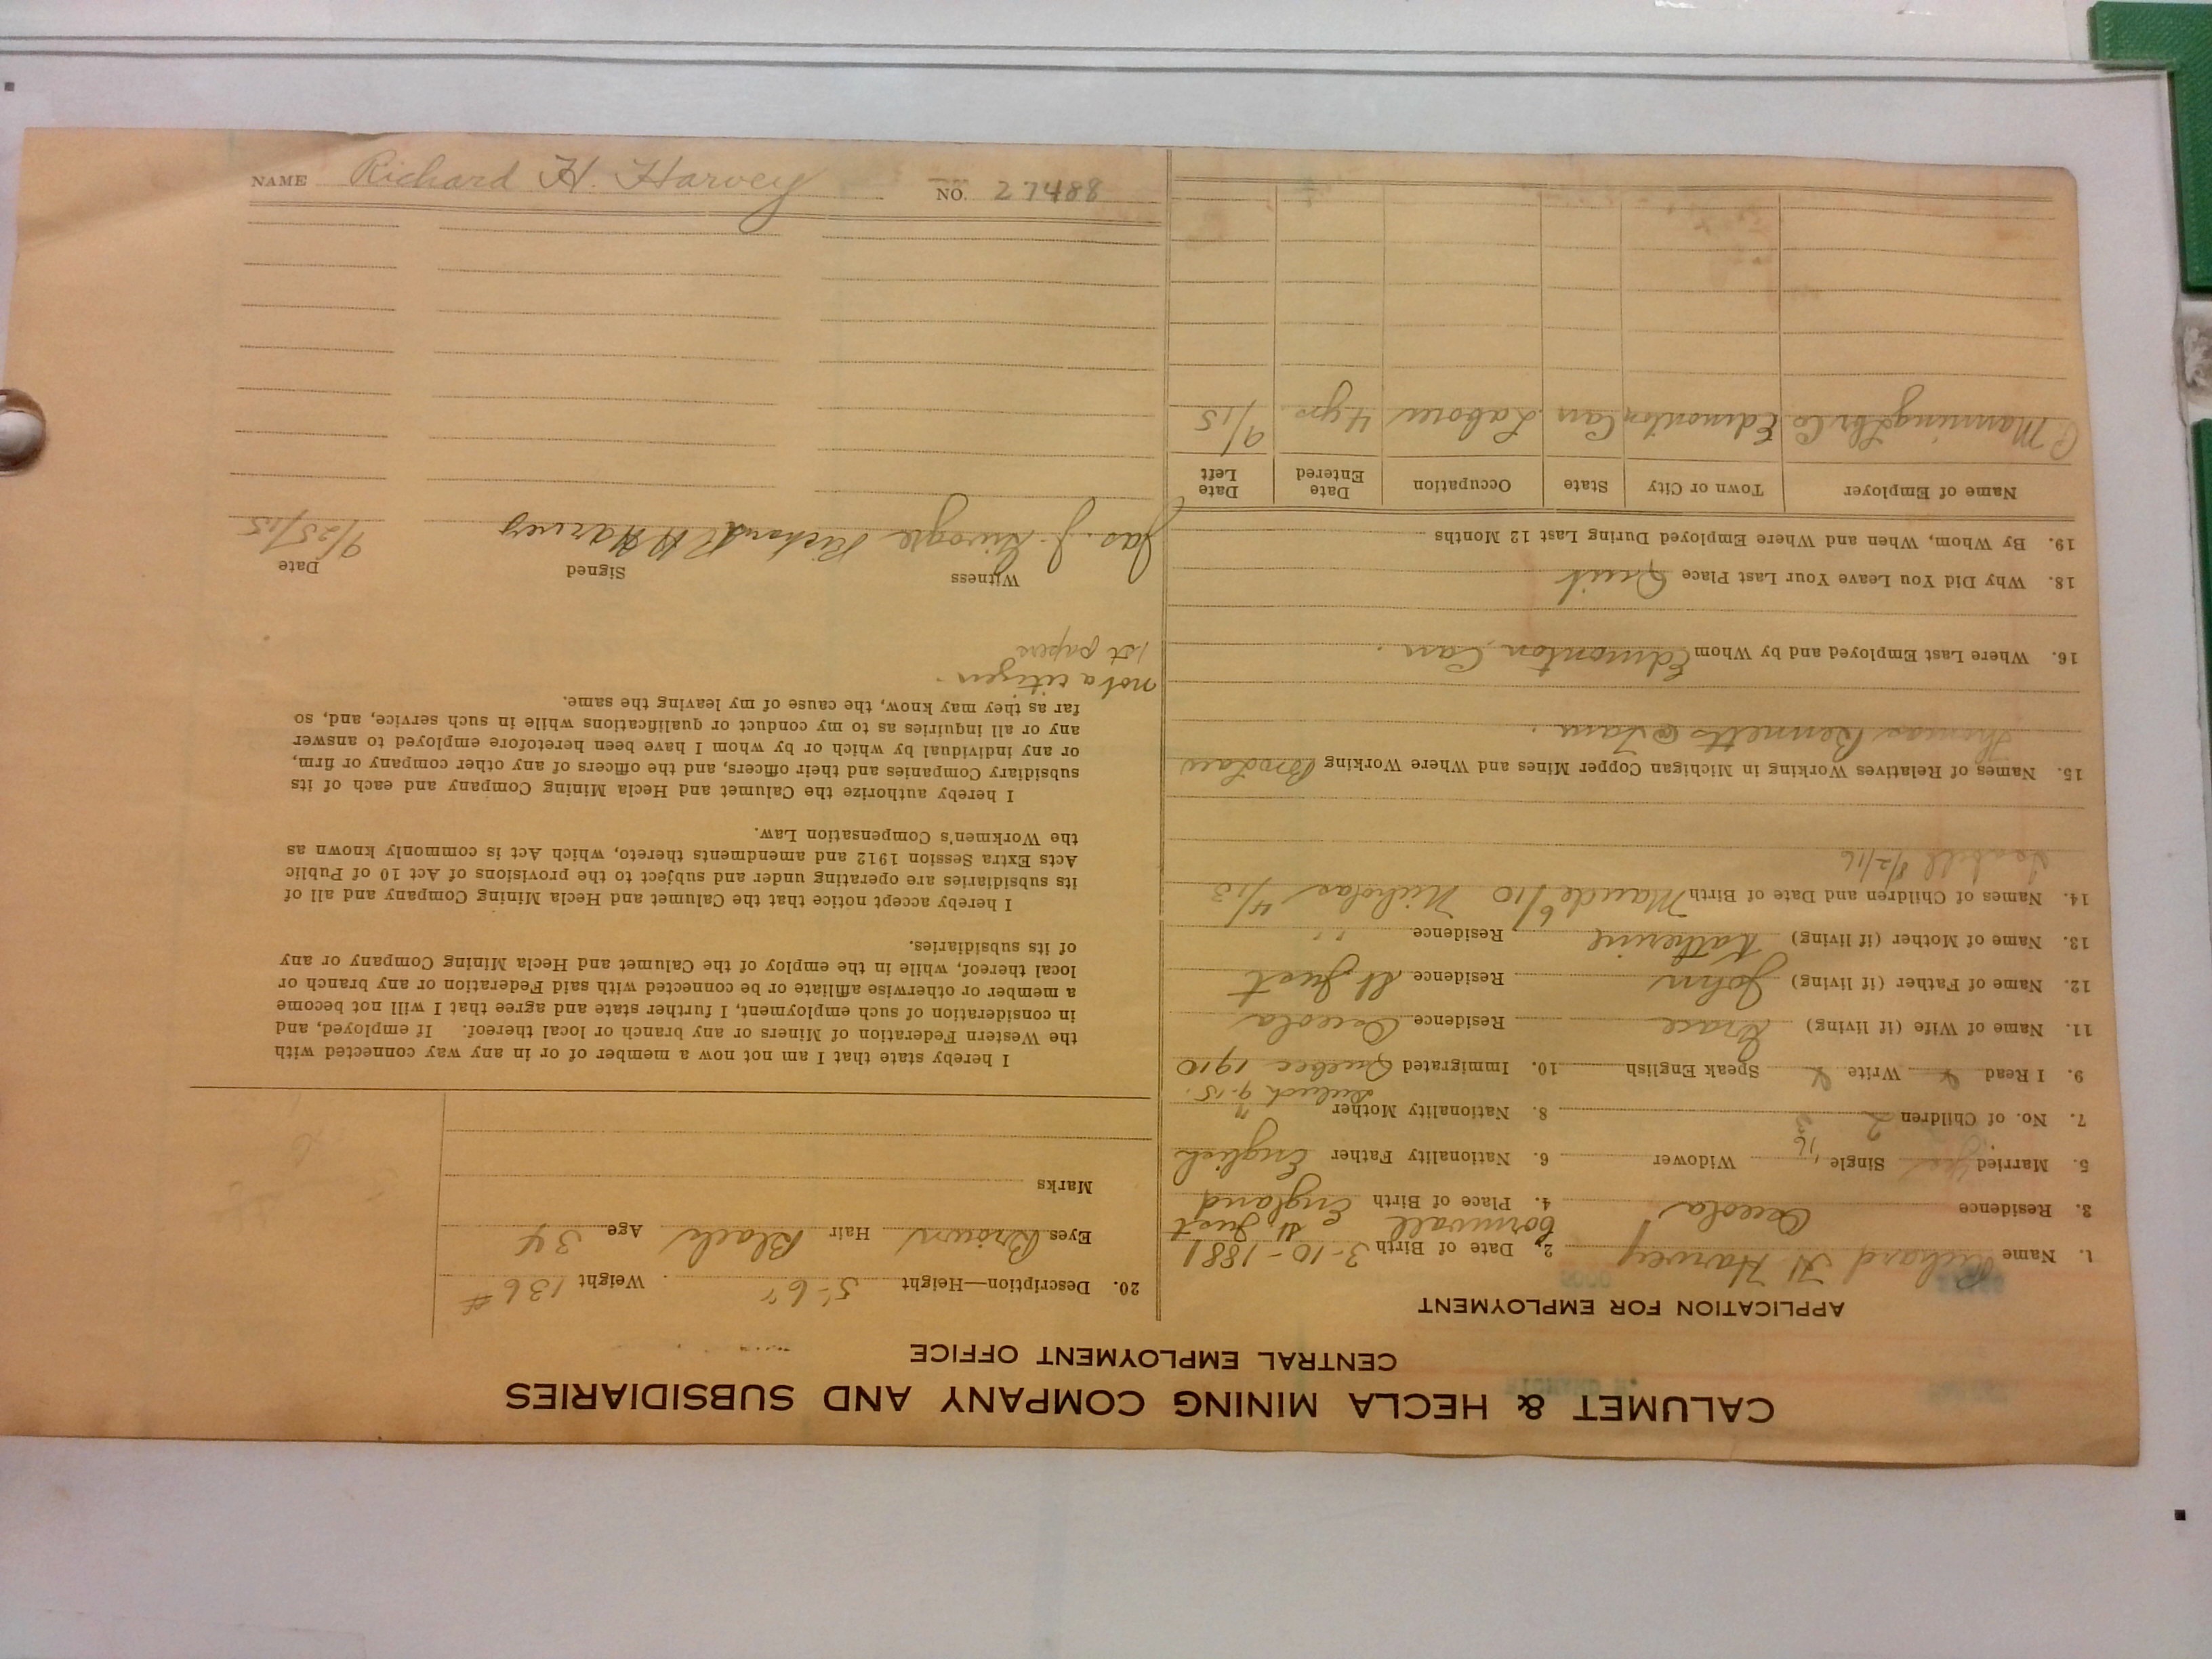 CALUMET & HECLA MINING COMPANY AND SUBSIDIARIES
CENTRAL EMPLOYMENT OFFICE
APPLICATION FOR EMPLOYMENT
1. Name Richard H Harvey 2. Date of Birth 3-10-1881
Cornwall St Just
3. Residence Osceola 4. Place of Birth England
5. Married yes Single Widower 6. Nationality Father English
7. No. of Children 2 3 8. Nationality Mother "
Duluth 9-15.
9. I Read Y Write Y Speak English 10. Immigrated Quebec 1910
11. Name of Wife (if living) Grace Residence Osceola
12. Name of Father (if living) John Residence St. Just
13. Name of Mother (if living) Katherine Residence "
14. Names of Children and Date of Birth Maude 6/10 Nicholas 4/13
8/2/16
15. Names of Relatives Working in Michigan Copper Mines and Where Working
Thomas Bennetts @ Tam.
16. Where Last Employed and by Whom Edmonton Can.
18. Why Did You Leave Your Last Place Quit
19. By Whom, When and Where Employed During Last 12 Months
Name of Employer Town or City State Occupation Date Entered Date Left
Manning Co Edmonton Can Laborer 4 yrs 9/15
20. Description—Height 5'-6" Weight 136 #
Eyes Brown Hair Black Age 34
Marks
I hereby state that I am not now a member of or in any way connected with
the Western Federation of Miners or any branch or local thereof. If employed, and
in consideration of such employment, I further state and agree that I will not become
a member or otherwise affiliate or be connected with said Federation or any branch or
local thereof, while in the employ of the Calumet and Hecla Mining Company or any
of its subsidiaries.
I hereby accept notice that the Calumet and Hecla Mining Company and all of
its subsidiaries are operating under and subject to the provisions of Act 10 of Public
Acts Extra Session 1912 and amendments thereto, which Act is commonly known as
the Workmen's Compensation Law.
I hereby authorize the Calumet and Hecla Mining Company and each of its
subsidiary Companies and their officers, and the officers of any other company or firm,
or any individual by which or by whom I have been heretofore employed to answer
any or all inquiries as to my conduct or qualifications while in such service, and, so
far as they may know, the cause of my leaving the same.
not a citizen.
1st papers
Witness Signed Date
Jas. J. Richard H Harvey 9/25/15
NAME Richard H. Harvey NO. 27488